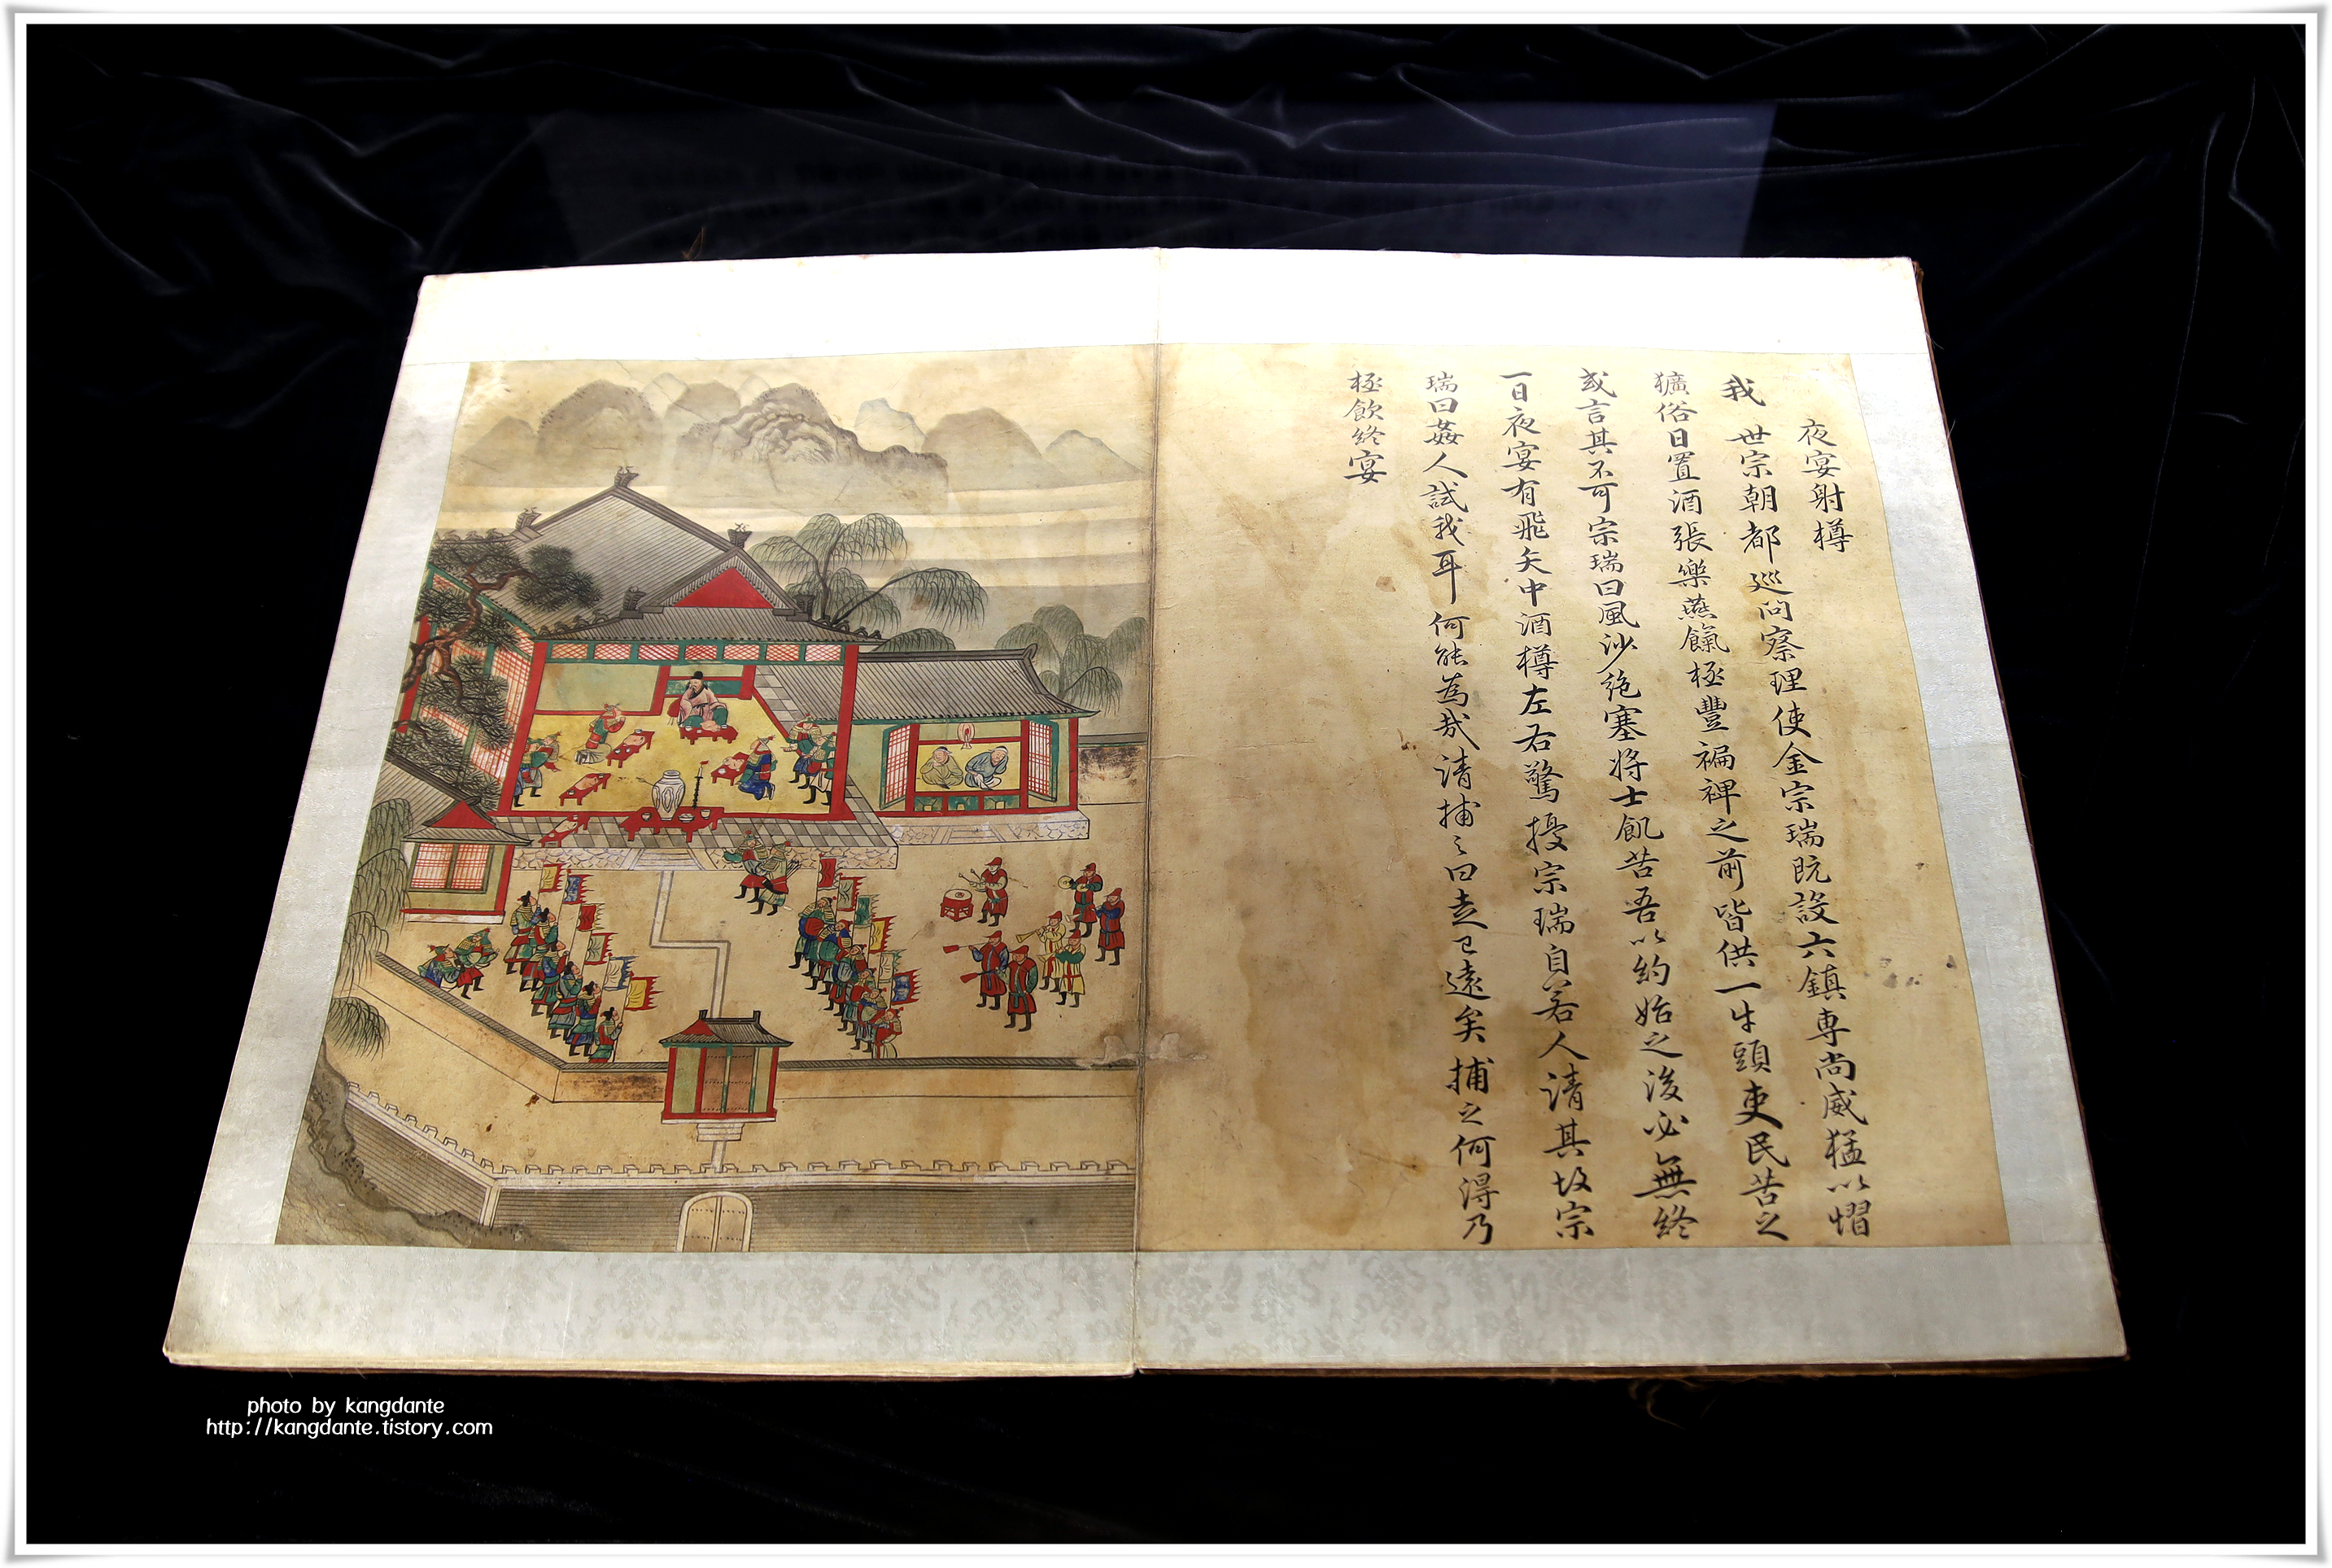 夜宴射樽
我 世宗朝都廵問察理使金宗瑞既設六鎮專尚威猛以慴
獷俗日置酒張樂燕餼極豐褊裨之前皆供一牛頭吏民苦之
或言其不可宗瑞曰風沙絶塞將士飢苦吾以約始之後必無終
一日夜宴有飛矢中酒樽左右驚擾宗瑞自若人請其故宗
瑞曰姦人試我耳何能為哉請捕之曰走已遠矣捕之何得乃
極飮終宴
photo by kangdante
http://kangdante.tistory.com